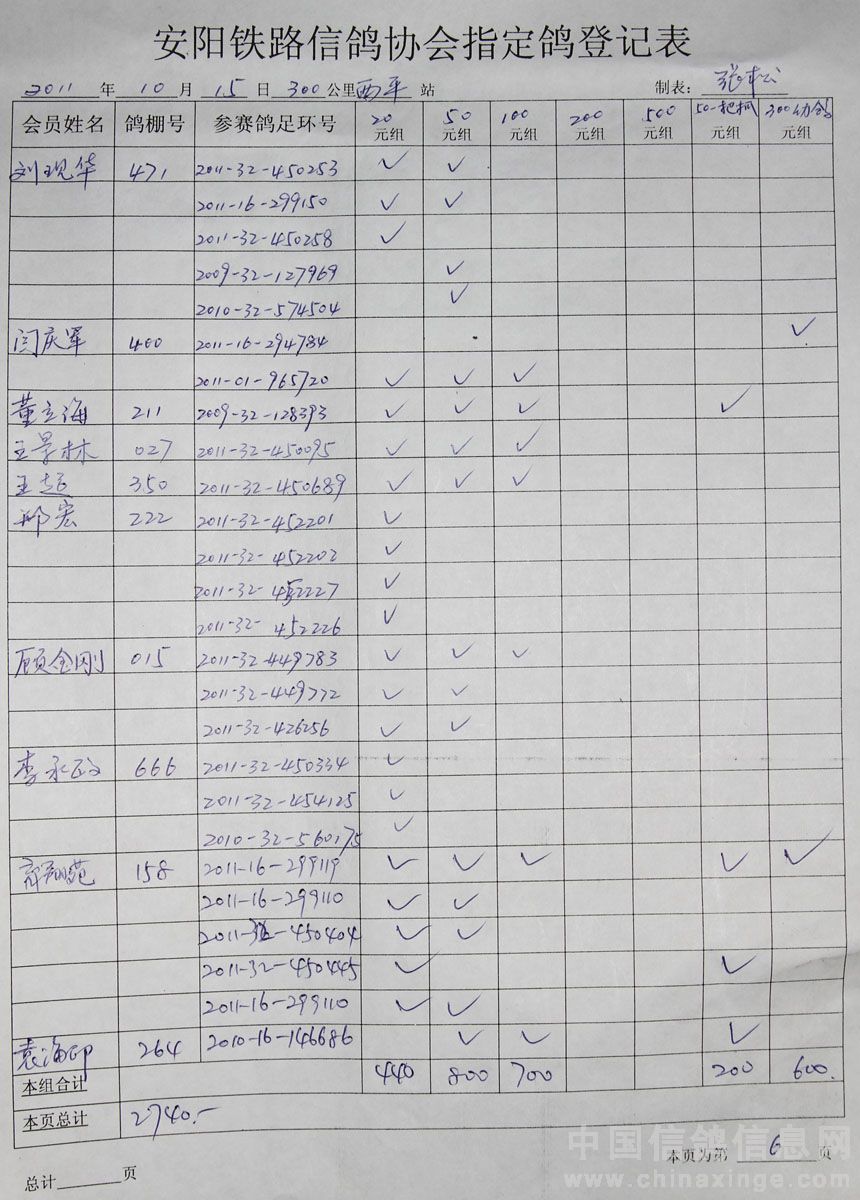 安阳铁路信鸽协会指定鸽登记表
2011 年 10 月 15 日 300 公里 西平 站 制表: 张松
会员姓名 鸽棚号 参赛鸽足环号 20元组 50元组 100元组 200元组 500元组 50一把抓元组 300幼鸽元组
刘现华 471 2011-32-450253 ✓ ✓
2011-16-299150 ✓ ✓
2011-32-450258 ✓
2009-32-127969 ✓
2010-32-574504 ✓
闫庆军 400 2011-16-294784 ✓
2011-01-965720 ✓ ✓ ✓
董立海 211 2009-32-128393 ✓ ✓ ✓ ✓
王景林 027 2011-32-450095 ✓ ✓ ✓
王超 350 2011-32-450689 ✓ ✓ ✓
邢宏 222 2011-32-452201 ✓
2011-32-452202 ✓
2011-32-452227 ✓
2011-32-452226 ✓
顾金刚 015 2011-32-449783 ✓ ✓ ✓
2011-32-449772 ✓ ✓
2011-32-426256 ✓ ✓
李永 666 2011-32-450334 ✓
2011-32-454125 ✓
2010-32-560175 ✓
158 2011-16-299119 ✓ ✓ ✓ ✓ ✓
2011-16-299110 ✓ ✓
2011-32-450404 ✓ ✓
2011-32-450445 ✓ ✓
2011-16-299110 ✓ ✓
袁海印 264 2010-16-146686 ✓ ✓ ✓
本组合计 440 800 700 200 600.
本页总计 2740.-
总计 页 本页为第 6 页
中国信鸽信息网
www.chinaxinge.com